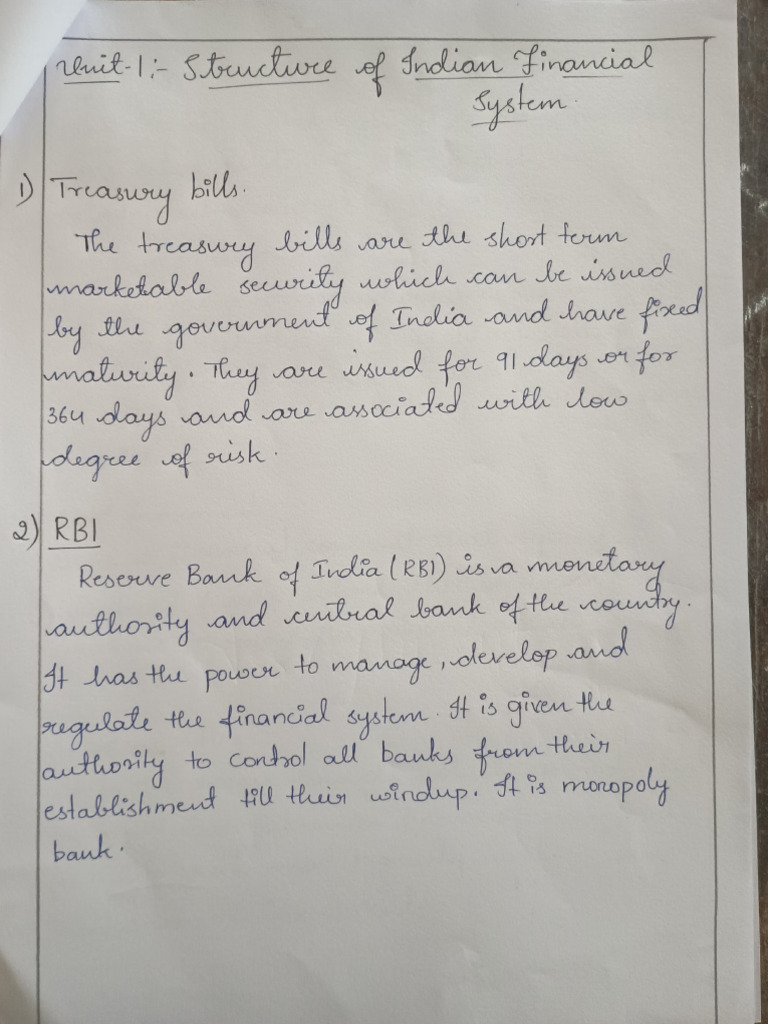 Unit-1:- Structure of Indian Financial
System.
1) Treasury bills.
The treasury bills are the short term
marketable security which can be issued
by the government of India and have fixed
maturity. They are issued for 91 days or for
364 days and are associated with low
degree of risk.
2) RBI
Reserve Bank of India (RBI) is a monetary
authority and central bank of the country.
It has the power to manage, develop and
regulate the financial system. It is given the
authority to control all banks from their
establishment till their windup. It is monopoly
bank.